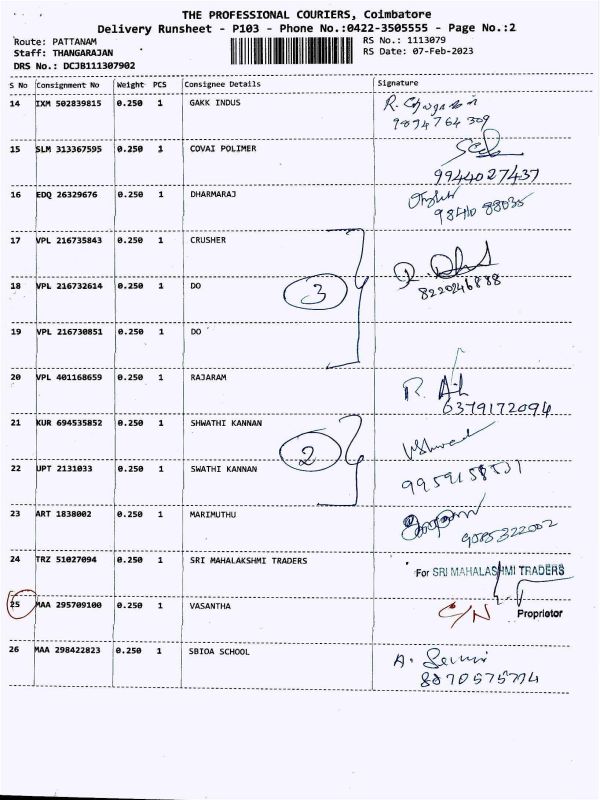 THE PROFESSIONAL COURIERS, Coimbatore
Delivery Runsheet - P103 - Phone No.:0422-3505555 - Page No.:2
Route: PATTANAM RS No.: 1113079
Staff: THANGARAJAN RS Date: 07-Feb-2023
DRS No.: DCJB111307902
S No Consignment No Weight PCS Consignee Details Signature
14 IXM 502839815 0.250 1 GAKK INDUS R.
9894764309
15 SLM 313367595 0.250 1 COVAI POLIMER
9944027437
16 EDQ 26329676 0.250 1 DHARMARAJ
98410 88035
17 VPL 216735843 0.250 1 CRUSHER
18 VPL 216732614 0.250 1 DO 3
8220246888
19 VPL 216730851 0.250 1 DO
20 VPL 401168659 0.250 1 RAJARAM R.
6379172094
21 KUR 694535852 0.250 1 SHWATHI KANNAN
22 UPT 2131033 0.250 1 SWATHI KANNAN 2
9959158531
23 ART 1838002 0.250 1 MARIMUTHU
9085322002
24 TRZ 51027094 0.250 1 SRI MAHALAKSHMI TRADERS For SRI MAHALASHMI TRADERS
25 MAA 295709100 0.250 1 VASANTHA C/N Proprietor
26 MAA 298422823 0.250 1 SBIOA SCHOOL A.